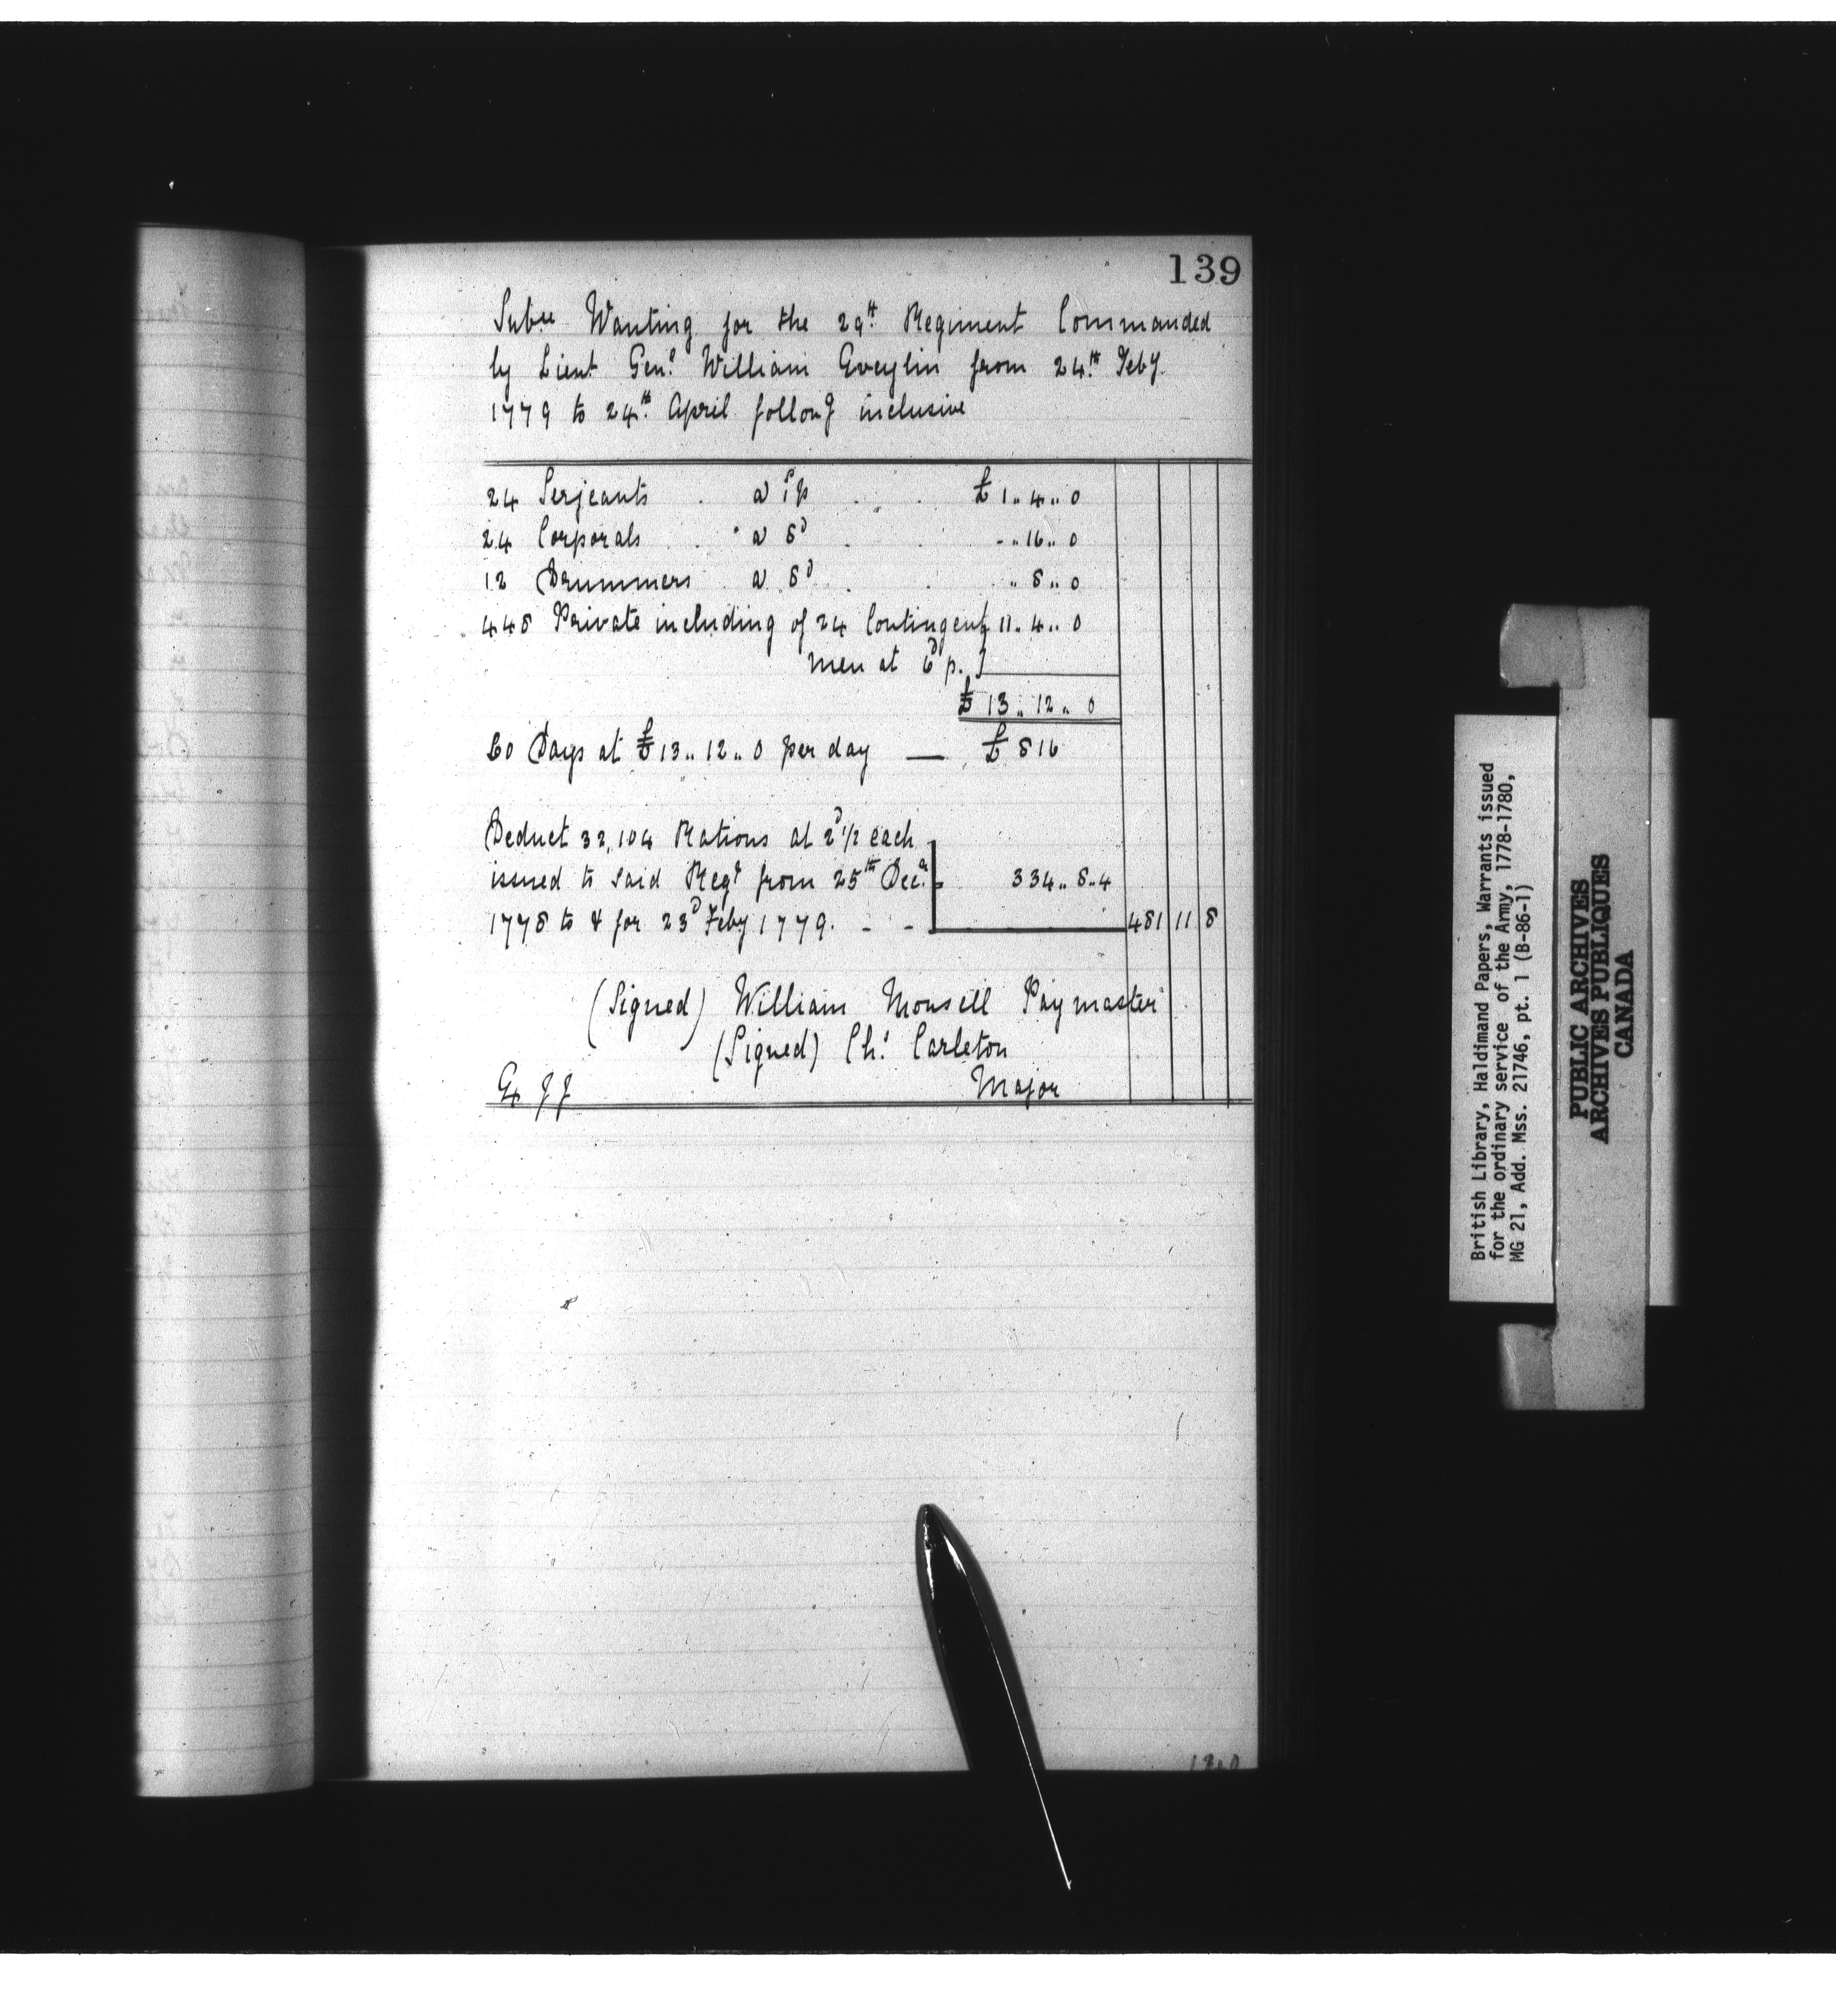 139
Subce Wanting for the 29th Regiment Commanded
by Lieut Genl William Eveylin from 24th Feby
1779 to 24th April follong inclusive
24 Serjeants . a 1s p . . £ 1.. 4.. 0
24 Corporals . a 8d . . -.. 16.. 0
12 Drummers a 8d . . .. 8.. 0
448 Private including of 24 Contingent } 11.. 4.. 0
men at 6d p.
£ 13.. 12.. 0
60 Days at £ 13.. 12.. 0 per day — £ 816
Deduct 32,104 Rations at 2d 1/2 each
issued to said Regt from 25th Decr 334.. 8.. 4
1778 to & for 23d Feby 1779. - - 481 11 8
(Signed) William Monsell Paymaster
(Signed) Chs Carleton
Major
British Library, Haldimand Papers, Warrants issued
for the ordinary service of the Army, 1778-1780,
MG 21, Add. Mss. 21746, pt. 1 (B-86-1)
PUBLIC ARCHIVES
ARCHIVES PUBLIQUES
CANADA